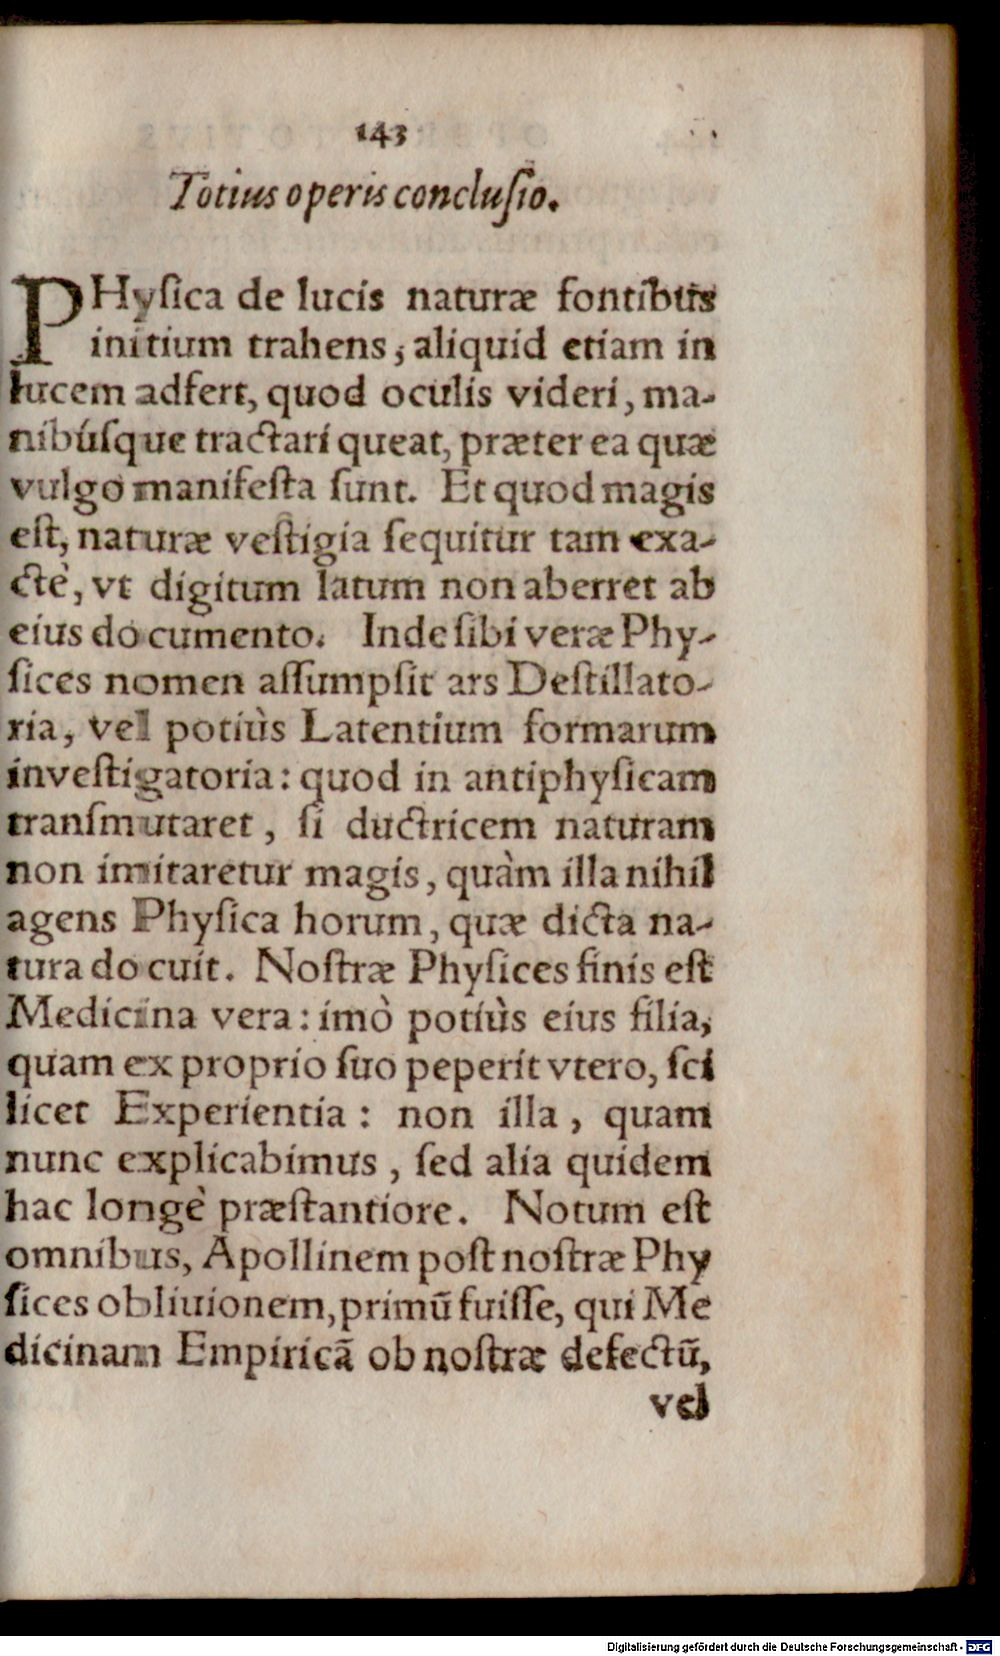 143
Totius operis conclusio.
PHysica de lucis naturæ fontibus
initium trahens, aliquid etiam in
lucem adfert, quod oculis videri, ma-
nibúsque tractari queat, præter ea quæ
vulgo manifesta sunt. Et quod magis
est, naturæ vestigia sequitur tam exa-
ctè, vt digitum latum non aberret ab
eius documento. Inde sibi veræ Phy-
sices nomen assumpsit ars Destillato-
ria, vel potiùs Latentium formarum
investigatoria: quod in antiphysicam
transmutaret, si ductricem naturam
non imitaretur magis, quàm illa nihil
agens Physica horum, quæ dicta na-
tura docuit. Nostræ Physices finis est
Medicina vera: imò potiùs eius filia,
quam ex proprio suo peperit vtero, sci
licet Experientia: non illa, quam
nunc explicabimus, sed alia quidem
hac longè præstantiore. Notum est
omnibus, Apollinem post nostræ Phy
sices obliuionem, primũ fuisse, qui Me
dicinam Empiricã ob nostræ defectũ,
vel
Digitalisierung gefördert durch die Deutsche Forschungsgemeinschaft - DFG